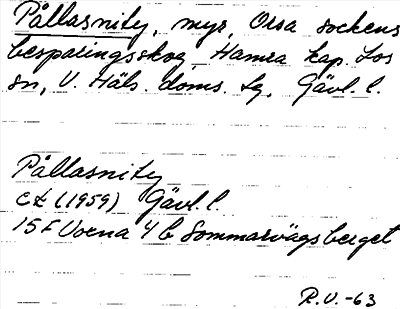 Pållasnity, myr, Orsa sockens
besparingsskog, Hamra kap. Los
sn, V. Häls. doms. lg, Gävl. l.
Pållasnity
ek (1959) Gävl. l.
15 F Voxna 4 b Sommarvägsberget
R.V. -63